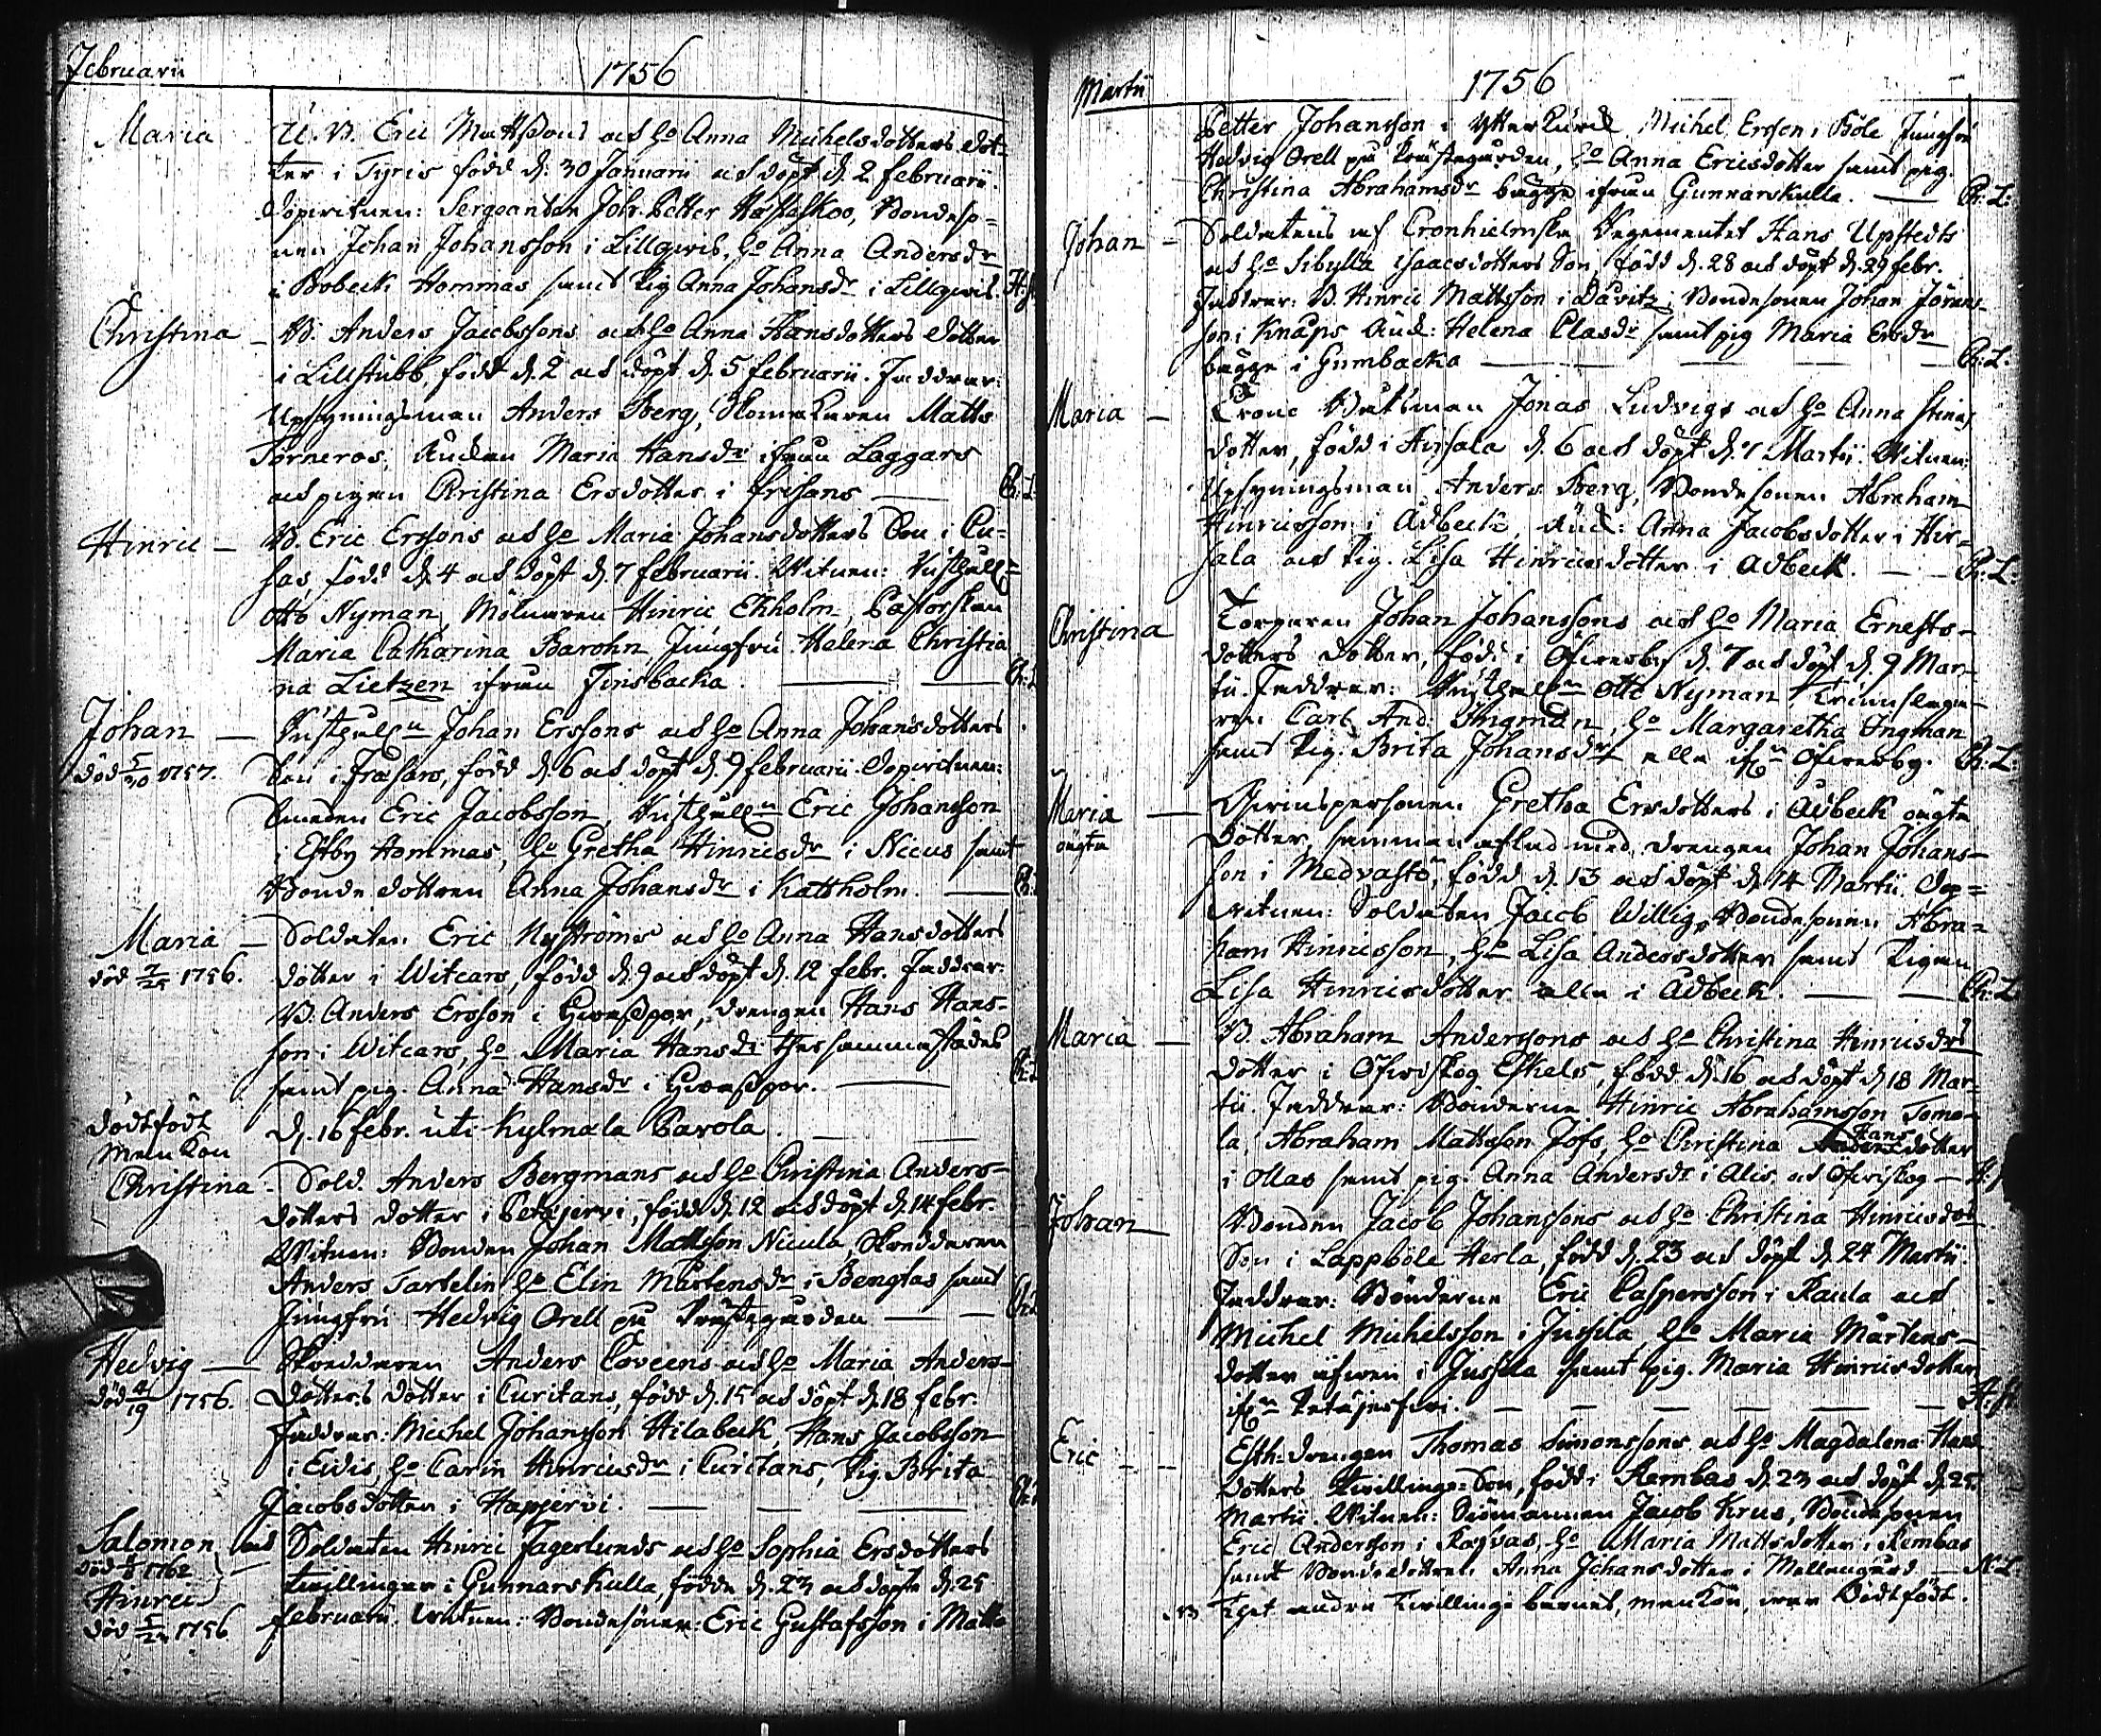 Februarii
1756
Maria
U. B. Eric Mattsons och ho Anna Michelsdotters dot-
ter i Tyris född d. 30 Januarii och döpt d. 2 februarii.
Dopvitnen: Sergeanten Joh. Petter Hästesko, Bondeso-
nen Johan Johansson i Lillgvis, ho Anna Andersdr
i Bobeck Hommas samt pig Anna Johansdr i Lillgvis.
Christina
B. Anders Jacobssons och ho Anna Hansdotters dotter
i Lillstubb, född d. 2 och döpt d. 5 februarii. Faddrar:
Upsyningsman Anders Berg, Skomakaren Matts
Törneros, Enckan Maria Hansdr ifrån Laggars
och pigan Christina Ersdotter i frisans Ch: L:
Hinric
B. Eric Erssons och ho Maria Johansdotters Son i Cu-
sas, född d. 4 och döpt d. 7 februarii. Witnen: Rusthåll:
Otto Nyman, Mölnaren Hinric Ekholm, Pastorskan
Maria Catharina Barohn, Jungfru Helena Christia
na Lietzen ifrån Finsbacka. Ch: L
Johan
död 5/30 1757.
Rusthålln Johan Erssons och ho Anna Johansdotters
Son i Fräsars, född d. 6 och döpt d. 9 februarii. Dopvitnen:
Bonden Eric Jacobsson, Rusthålln Eric Johansson
i Estby Hommas, ho Gretha Hinricsdr i Nicus samt
Bonde dottren Anna Johansdr i Kattholm.
Maria
död 7/25 1756.
Soldaten Eric Nyströms och ho Anna Hansdotters
dotter i Witcars, född d. 9 och döpt d. 12 febr. Faddrar:
B. Anders Ersson i, drengen Hans Hans-
son i Witcars, ho Maria Hansdr thersammastädes
samt pig. Anna Hansdr i
Dödtfödt
Mankön
D. 16 febr. uti Kylmäla Pavola.
Christina
Sold. Anders Bergmans och ho Christina Anders-
dotters dotter i Petäjervi, född d. 12 och döpt d. 14 febr.
Witnen: Bonden Johan Mattsson Nicula, Skreddaren
Anders Tartelin, ho Elin Mårtensdr i Bengtas samt
Jungfru Hedvig Orell på Prästegården
Hedvig
död 4/19 1756.
Skreddaren Anders Coveens och ho Maria Anders-
dotters dotter i Curitans, född d. 15 och döpt d. 18 febr.
Faddrar: Michel Johansson Hilabeck, Hans Jacobsson
i Evis, ho Carin Hinricsdr i Curitans, pig. Brita
Jacobsdotter i Hapjervi.
Salomon, och
död 1762
Hinric
död 5/24 1756
Soldaten Hinric Fagerlunds och ho Sophia Ersdotters
twillingar i Gunnarskulla, födde d. 23 och döpte d. 25
februarii. Witnen: Bondesöner: Eric Gustafsson i Matts
Martii
1756
Petter Johansson i Ytterkurck, Michel Ersson i Böle, Jungfru
Hedvig Orell på Prästegården, ho Anna Ericsdotter samt pig.
Christina Abrahamsdr bägge ifrån Gunnarskulla. Ch: L:
Johan
Soldatens af Cronhielmska Regementet Hans Upstedts
och ho Sibylla Isaacsdotters Son, född d. 28 och döpt d. 29 febr.
Faddrar: B. Hinric Mattsson i Davitz, Bondesonen Johan Jörans-
son i Knaps, Enck: Helena Clasdr samt pig Maria Ersdr
bägge i Gumbacka Ch: L.
Maria
Crono Båtsman Jonas Ludvigs och ho Anna Stinas
dotter, född i Hirsala d. 6 och döpt d. 7 Martii. Witnen:
Upsyningsman Anders Berg, Bondesonen Abraham
Hinricsson i Adbeck, Enck: Anna Jacobsdotter i Hir-
sala och Pig. Lisa Hinricsdotter i Adbeck. Ch: L:
Christina
Torparen Johan Johanssons och ho Maria Ernests-
dotters dotter, född i Öfversby d. 7 och döpt d. 9 Mar-
tii. Faddrar: Rusthålln Otto Nyman, Trumslaga-
ren Carl And: Ingman, ho Margaretha Ingman
samt Pig. Brita Johansdr alla ifrn Öfversby. Ch: L:
Maria
oägta
Qvinspersonen Gretha Ersdotters i Adbeck oägta
dotter, samman aflad med drengen Johan Johans-
son i Medvastö, född d. 13 och döpt d. 14 Martii. Dop-
vitnen: Soldaten Jacob Willig, Bondesonen Abra-
ham Hinricsson, ho Lisa Andersdotter samt Pigan
Lisa Hinricsdotter alla i Adbeck. Ch: L:
Maria
B. Abraham Anderssons och ho Christina Hinricsdrs
dotter i Öfverskog Eskels, född d. 16 och döpt d. 18 Mar-
tii. Faddrar: Bönderne Hinric Abrahamsson Tomo-
la, Abraham Mattsson Jofs, ho Christina Hans dotter
i Ollas samt pig. Anna Andersdr i Alis och Öfverskog
Johan
Bonden Jacob Johanssons och ho Christina Hinricsdrs
Son i Lappböle Herla, född d. 23 och döpt d. 24 Martii.
Faddrar: Bönderne Eric Caspersson i Raula och
Michel Michelsson i Jussila, ho Maria Mårtens-
dotter äfven i Jussila samt pig. Maria Hinricsdotter
ifrn Petäjerfvi.
Eric
Esth-drengen Thomas Simonssons och ho Magdalena Hans
dotters twillinge-Son, född i Rembas d. 23 och döpt d. 25.
Martii. Witnen: Siömannen Jacob Krus, Bondesonen
Eric Andersson i, ho Maria Mattsdotter i Rembas
samt Bondedotren Anna Johansdotter i Mellangård. N: L:
NB Thet andra Twillinge barnet, mankön, war Dödtfödt.